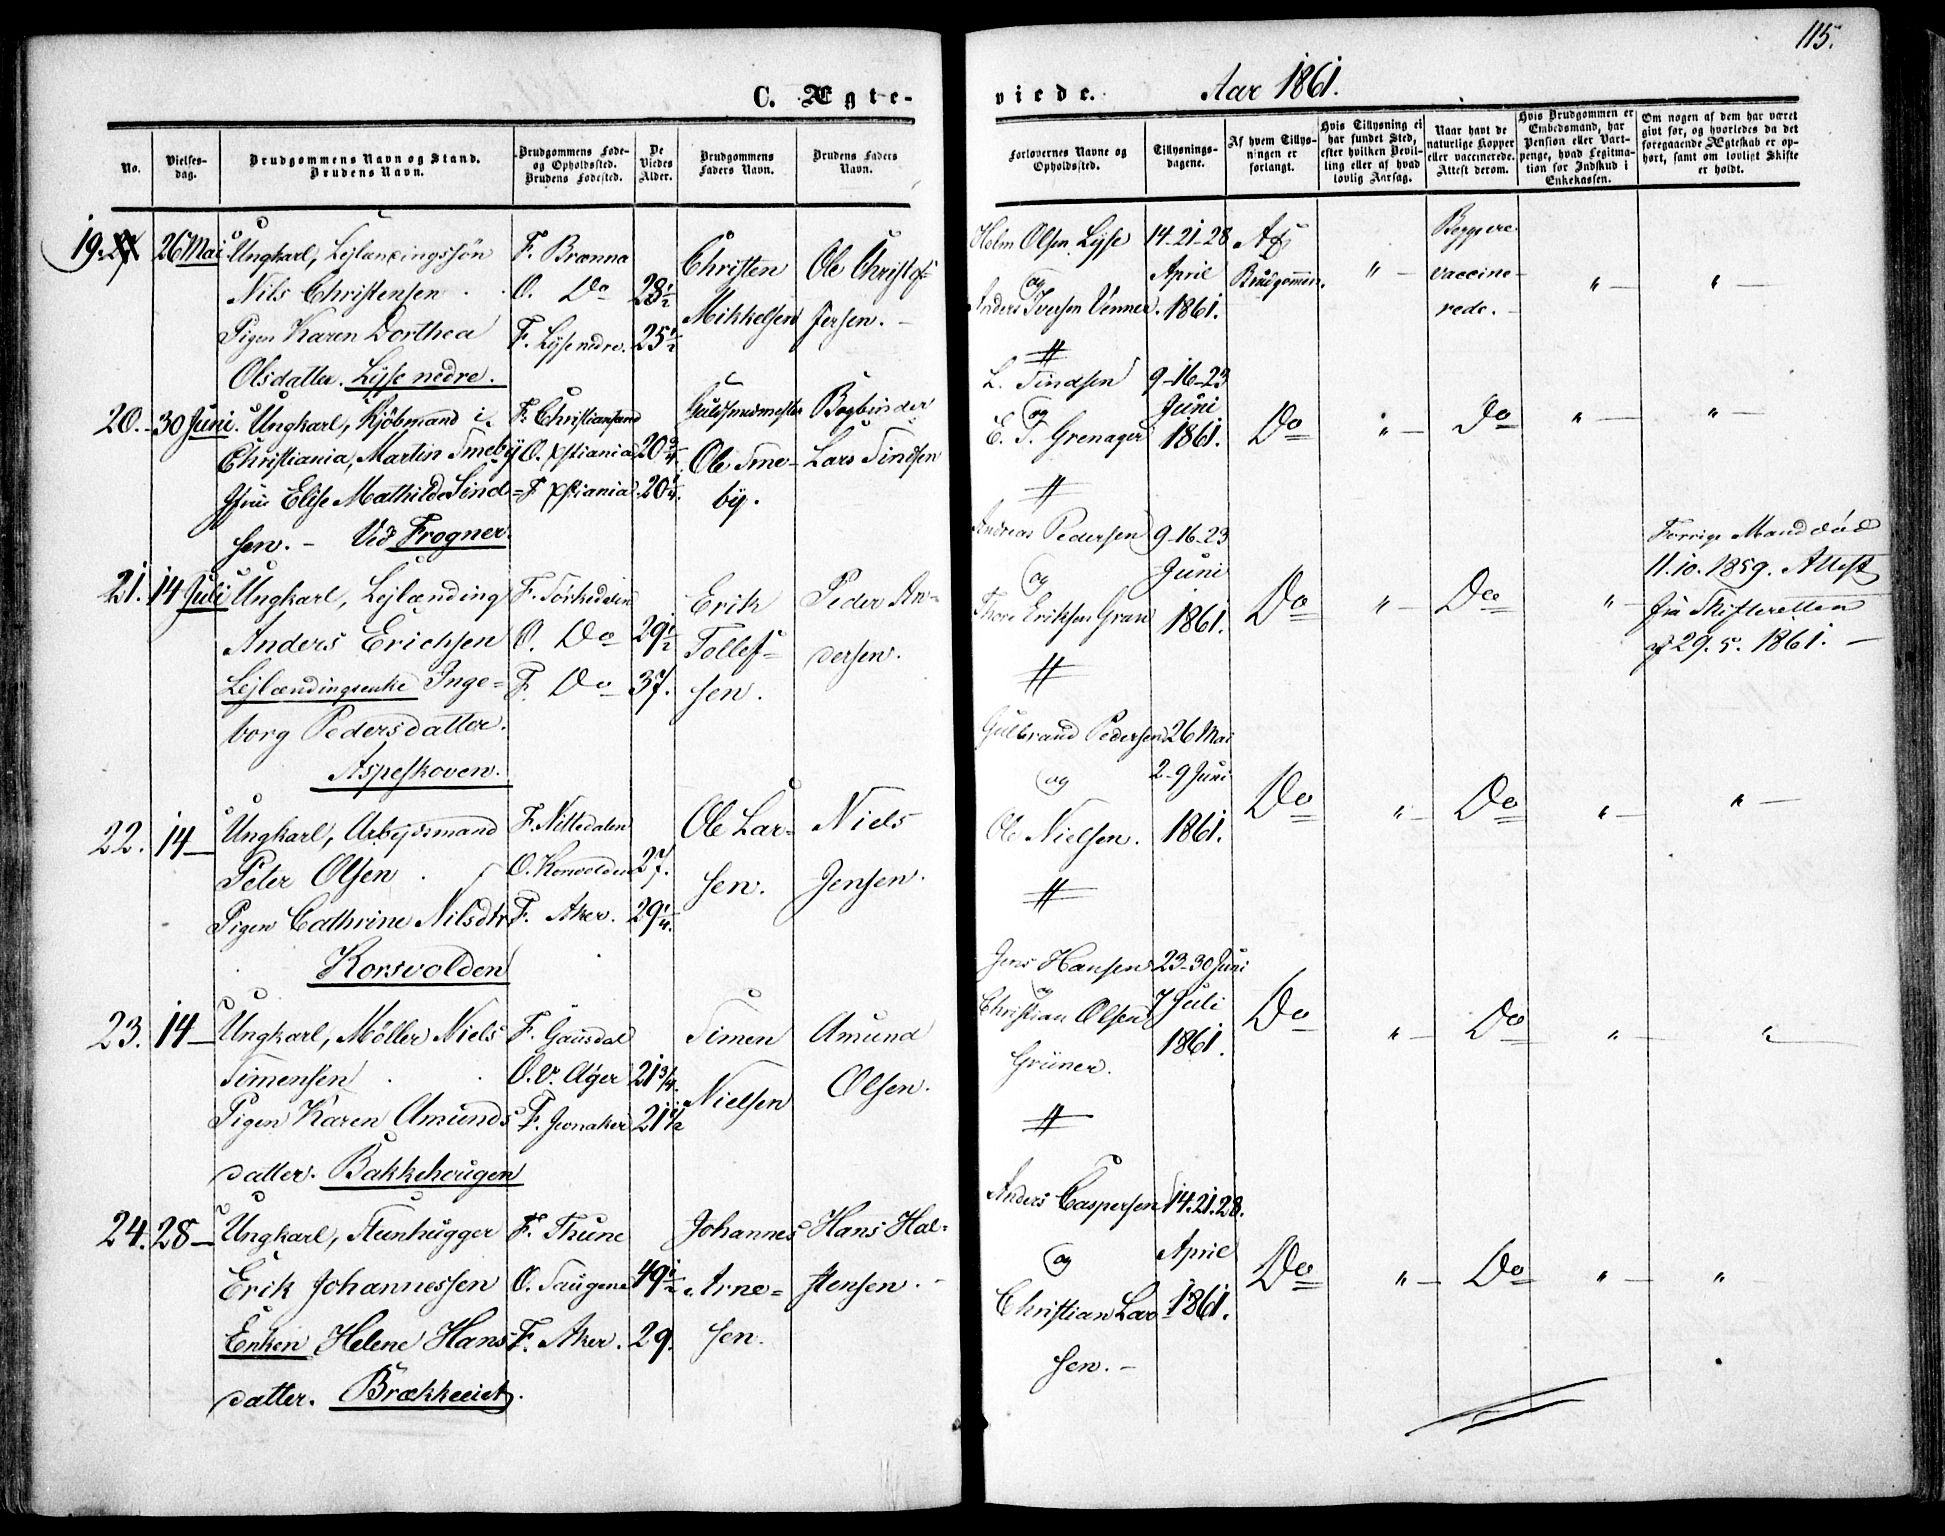 115.
C. Ægte-
viede. Aar 1861.
No.
Vielses-
dag.
Brudgommens Navn og Stand.
Brudens Navn.
Brudgommens Føde-
og Opholdssted.
Brudens Fødested.
De
Viedes
Alder.
Brudgommens
Faders Navn.
Brudens Faders
Navn.
Forlovernes Navne og
Opholdssted.
Tillysnings-
dagene.
Af hvem Tillys-
ningen er
forlangt.
Hvis Tillysning ei
har fundet Sted,
efter hvilken Bevil-
ling eller af hvad
lovlig Aarsag.
Naar havt de
naturlige Kopper
eller vaccinerede.
Attest derom.
Hvis Brudgommen er
Embedsmand, har
Pension eller Vart-
penge, hvad Legitma-
tion for Indskud i
Enkekassen.
Om nogen af dem har været
gift før, og hvorledes da det
foregaaende Ægteskab er op-
hørt, samt om lovligt Skifte
er holdt.
19. 26 Mai
Ungkarl, Lejlændingssøn
Nils Christensen
Pigen Karen Dorthea
Olsdatter. Lysse nedre.
F. Brænna
O. Do 28½
F. Lysse nedre. 25½
Christen
Mikkelsen
Ole Christof-
fersen. –
Holm Olsen Lysse
og
Anders Iversen Venner.
14-21-28
April
1861.
Af
Brudgommen.
" –
Begge ere
vaccine-
rede. –
" –
" –
20. 30 Juni.
Ungkarl, Kjøbmand i
Christiania, Martin Smeby
Jfru Elise Mathilde Sind-
sen. – Ved Frogner.
F. Christiansand
O. Xstiania 20¾
F. Xstiania 20¼.
Guldsmedmester
Ole Sme-
by.
Bogbinder
Lars Sindsen
L. Sindsen
og
E. T. Grenager
9-16-23
Juni
1861.
Do
" –
Do
" –
" –
21. 14 Juli
Ungkarl, Lejlænding
Anders Erichsen
Lejlændingsenke Inge-
borg Pedersdatter.
Aspeskoven.
F. Sørkedalen
O. Do 29½
F. Do 37.
Erik
Tollef-
sen.
Peder An-
dersen.
Andreas Pedersen
og
Thore Eriksen Gran
9-16-23
Juni
1861.
Do
" –
Do
" –
Forrige Mand død
11.10.1859. Attest
fra Skifteretten
af 29.5.1861. –
22. 14 –
Ungkarl, Arbejdsmand
Peter Olsen
Pigen Cathrine Nilsdtr
Korsvolden
F. Nittedalen
O. Korsvolden 27.
F. Aker. 29¼.
Ole Lar-
sen.
Niels
Jensen.
Gulbrand Pedersen
og
Ole Nielsen.
26 Mai
2-9 Juni
1861.
Do
" –
Do
" –
" –
23. 14 –
Ungkarl, Møller Niels
Simensen
Pigen Karen Amunds
datter. Bakkehougen
F. Gausdal
O. V. Ager 21¾.
F. Jevnaker 21½
Simen
Nielsen
Amund
Olsen.
Jens Hansen
og
Christian Olsen
Grüner.
23-30 Juni
7 Juli
1861.
Do
" –
Do
" –
" –
24. 28 –
Ungkarl, Steenhugger
Erik Johannessen
Enken Helene Hans-
datter. Brækkeeiet.
F. Thune
O. Saugene 49½
F. Aker. 29.
Johannes
Arne-
sen.
Hans Hal-
stensen. –
Anders Caspersen
og
Christian Lar
sen. –
14.21.28.
April
1861.
Do
" –
Do
" –
" –